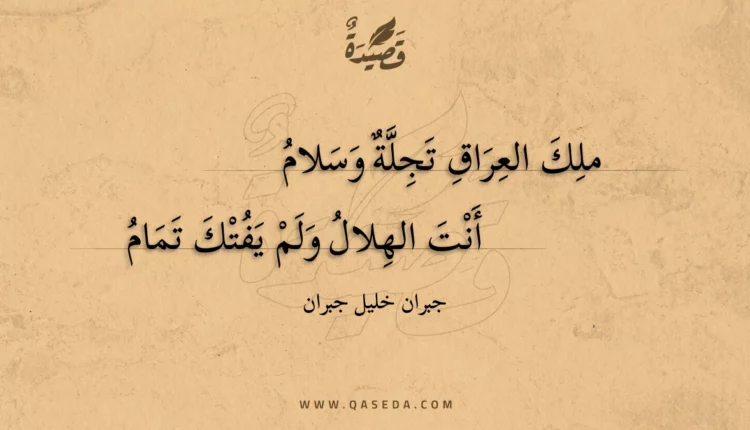 قَصِيدَةٌ
ملِكَ العِرَاقِ تَجِلَّةٌ وَسَلامُ
أَنْتَ الهِلالُ وَلَمْ يَفُتْكَ تَمَامُ
جبران خليل جبران
WWW.QASEDA.COM